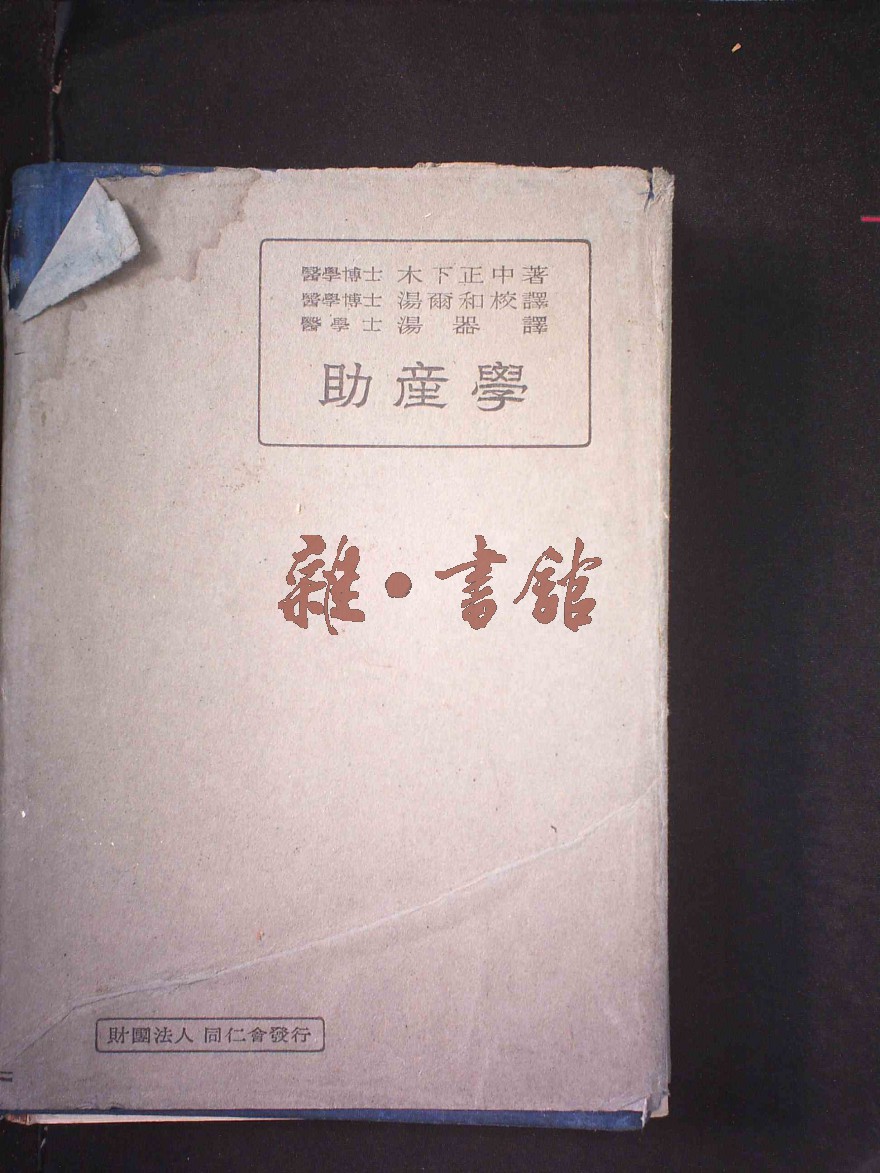 醫學博士 木下正中著
醫學博士 湯爾和校譯
醫學士 湯器譯
助産學
雜·書館
財團法人 同仁會發行